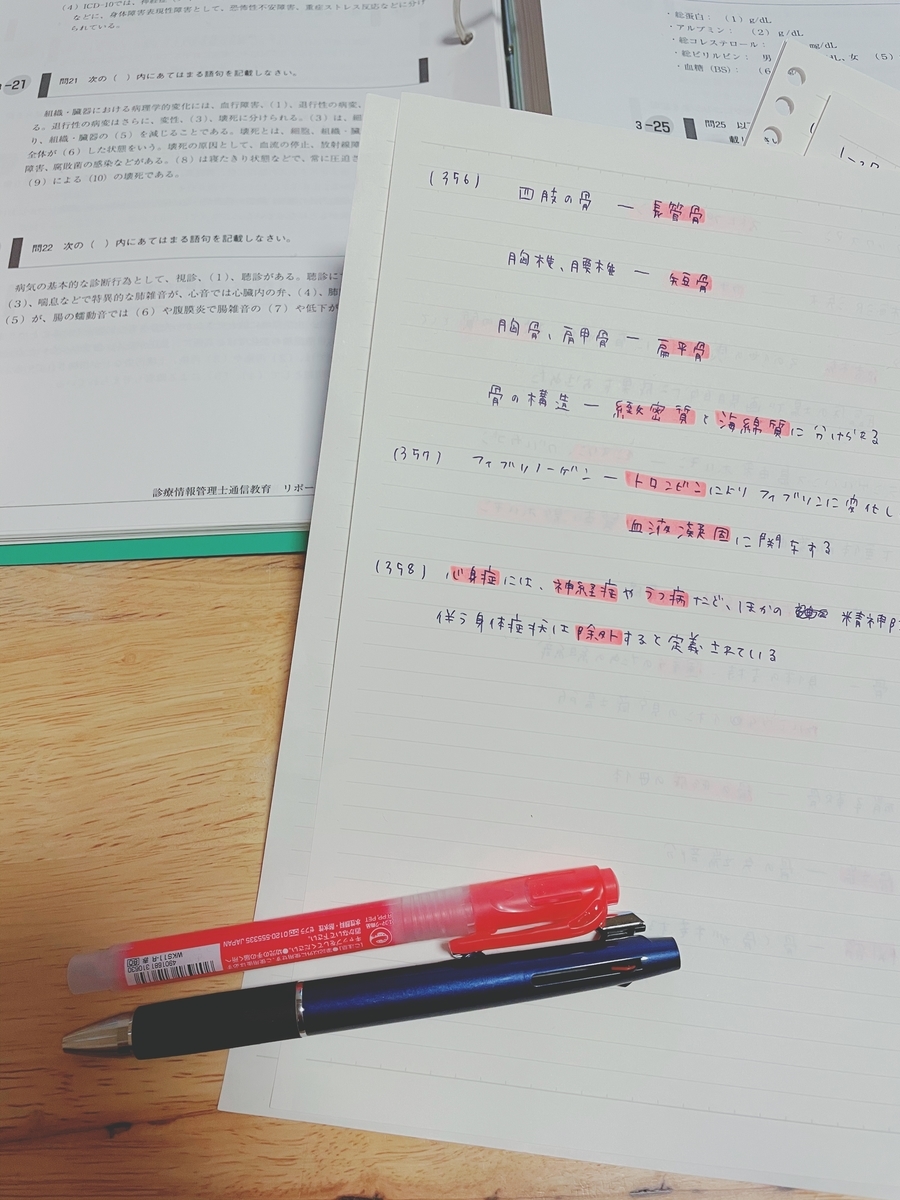 (4) ICD-10では、
などに、身体障害表現性障害として、恐怖性不安障害、重症ストレス反応などに分け
られている。
-21
問21 次の（ ）内にあてはまる語句を記載しなさい。
組織・臓器における病理学的変化には、血行障害、(1)、退行性の病変、
る。退行性の病変はさらに、変性、(3)、壊死に分けられる。(3) は、細
り、組織・臓器の (5) を減じることである。壊死とは、細胞、組織・臓
全体が (6) した状態をいう。壊死の原因として、血流の停止、放射線障
障害、腐敗菌の感染などがある。(8) は寝たきり状態などで、常に圧迫さ
(9) による (10) の壊死である。
問22 次の（ ）内にあてはまる語句を記載しなさい。
病気の基本的な診断行為として、視診、(1)、聴診がある。聴診に
(3)、喘息などで特異的な肺雑音が、心音では心臓内の弁、(4)、肺
(5) が、腸の蠕動音では (6) や腹膜炎で腸雑音の (7) や低下が
診療情報管理士通信教育 リポー
・総蛋白： (1) g/dL
・アルブミン： (2) g/dL
・総コレステロール： mg/dL
・総ビリルビン： 男 女 (5)
・血糖 (BS)： (6
3-25
問25 以
載
(356)
四肢の骨 — 長管骨
胸椎、腰椎 — 短骨
胸骨、肩甲骨 — 扁平骨
骨の構造 — 緻密質と海綿質に分けられる
(357) フィブリノーゲン — トロンビンによりフィブリンに変化し
血液凝固に関与する
(358) 心身症には、神経症やうつ病など、ほかの 精神
伴う身体症状は除外すると定義されている
WKS11-R 赤
4901681 310630
0120-555335 JAPAN